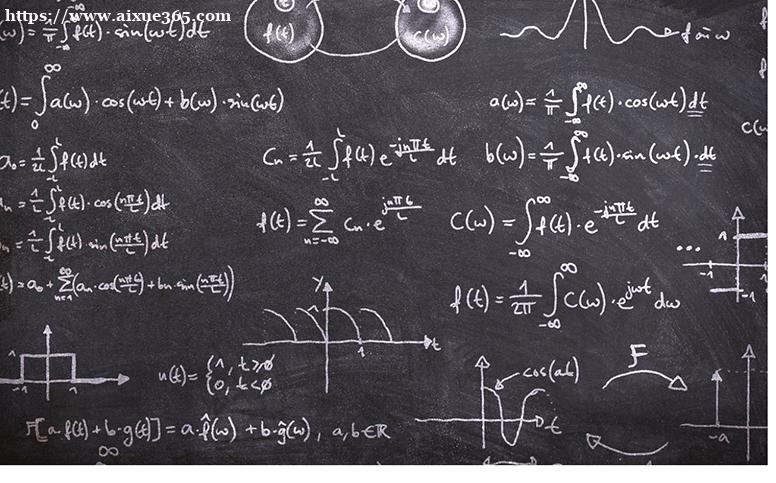 https://www.aixue365.com
(ω) = 1/π ∫_{-∞} f(t) · sin(ωt) dt
f(t)
C(ω)
(t) = ∫_0^∞ a(ω) · cos(ωt) + b(ω) · sin(ωt)
a(ω) = 1/π ∫_{-∞}^∞ f(t) · cos(ωt) dt
a_0 = 1/2L ∫_{-L}^L f(t) dt
C_n = 1/2L ∫_{-L}^L f(t) e^{-jnπt/L} dt
b(ω) = 1/π ∫_{-∞}^∞ f(t) · sin(ωt) · dt
C(ω
_n = 1/L ∫_{-L}^L f(t) · cos(nπt/L) dt
f(t) = ∑_{n=-∞}^∞ C_n · e^{jnπt/L}
C(ω) = ∫_{-∞}^∞ f(t) · e^{-jnπt/L} dt
_n = 1/L ∫_{-L}^L f(t) sin(nπt/L) dt
...
1
-1
(t) = a_0 + ∑_{n=1}^∞ (a_n · cos(nπt/L) + b_n · sin(nπt/L))
y
1
1
t
f(t) = 1/2π ∫_{-∞}^∞ C(ω) · e^{jωt} dω
1
-1
1
u(t) = {1, t>0
0, t<0
cos(at)
t
F
-a
F[a · f(t) + b · g(t)] = a · f̂(ω) + b · ĝ(ω), a, b ∈ ℝ
∞